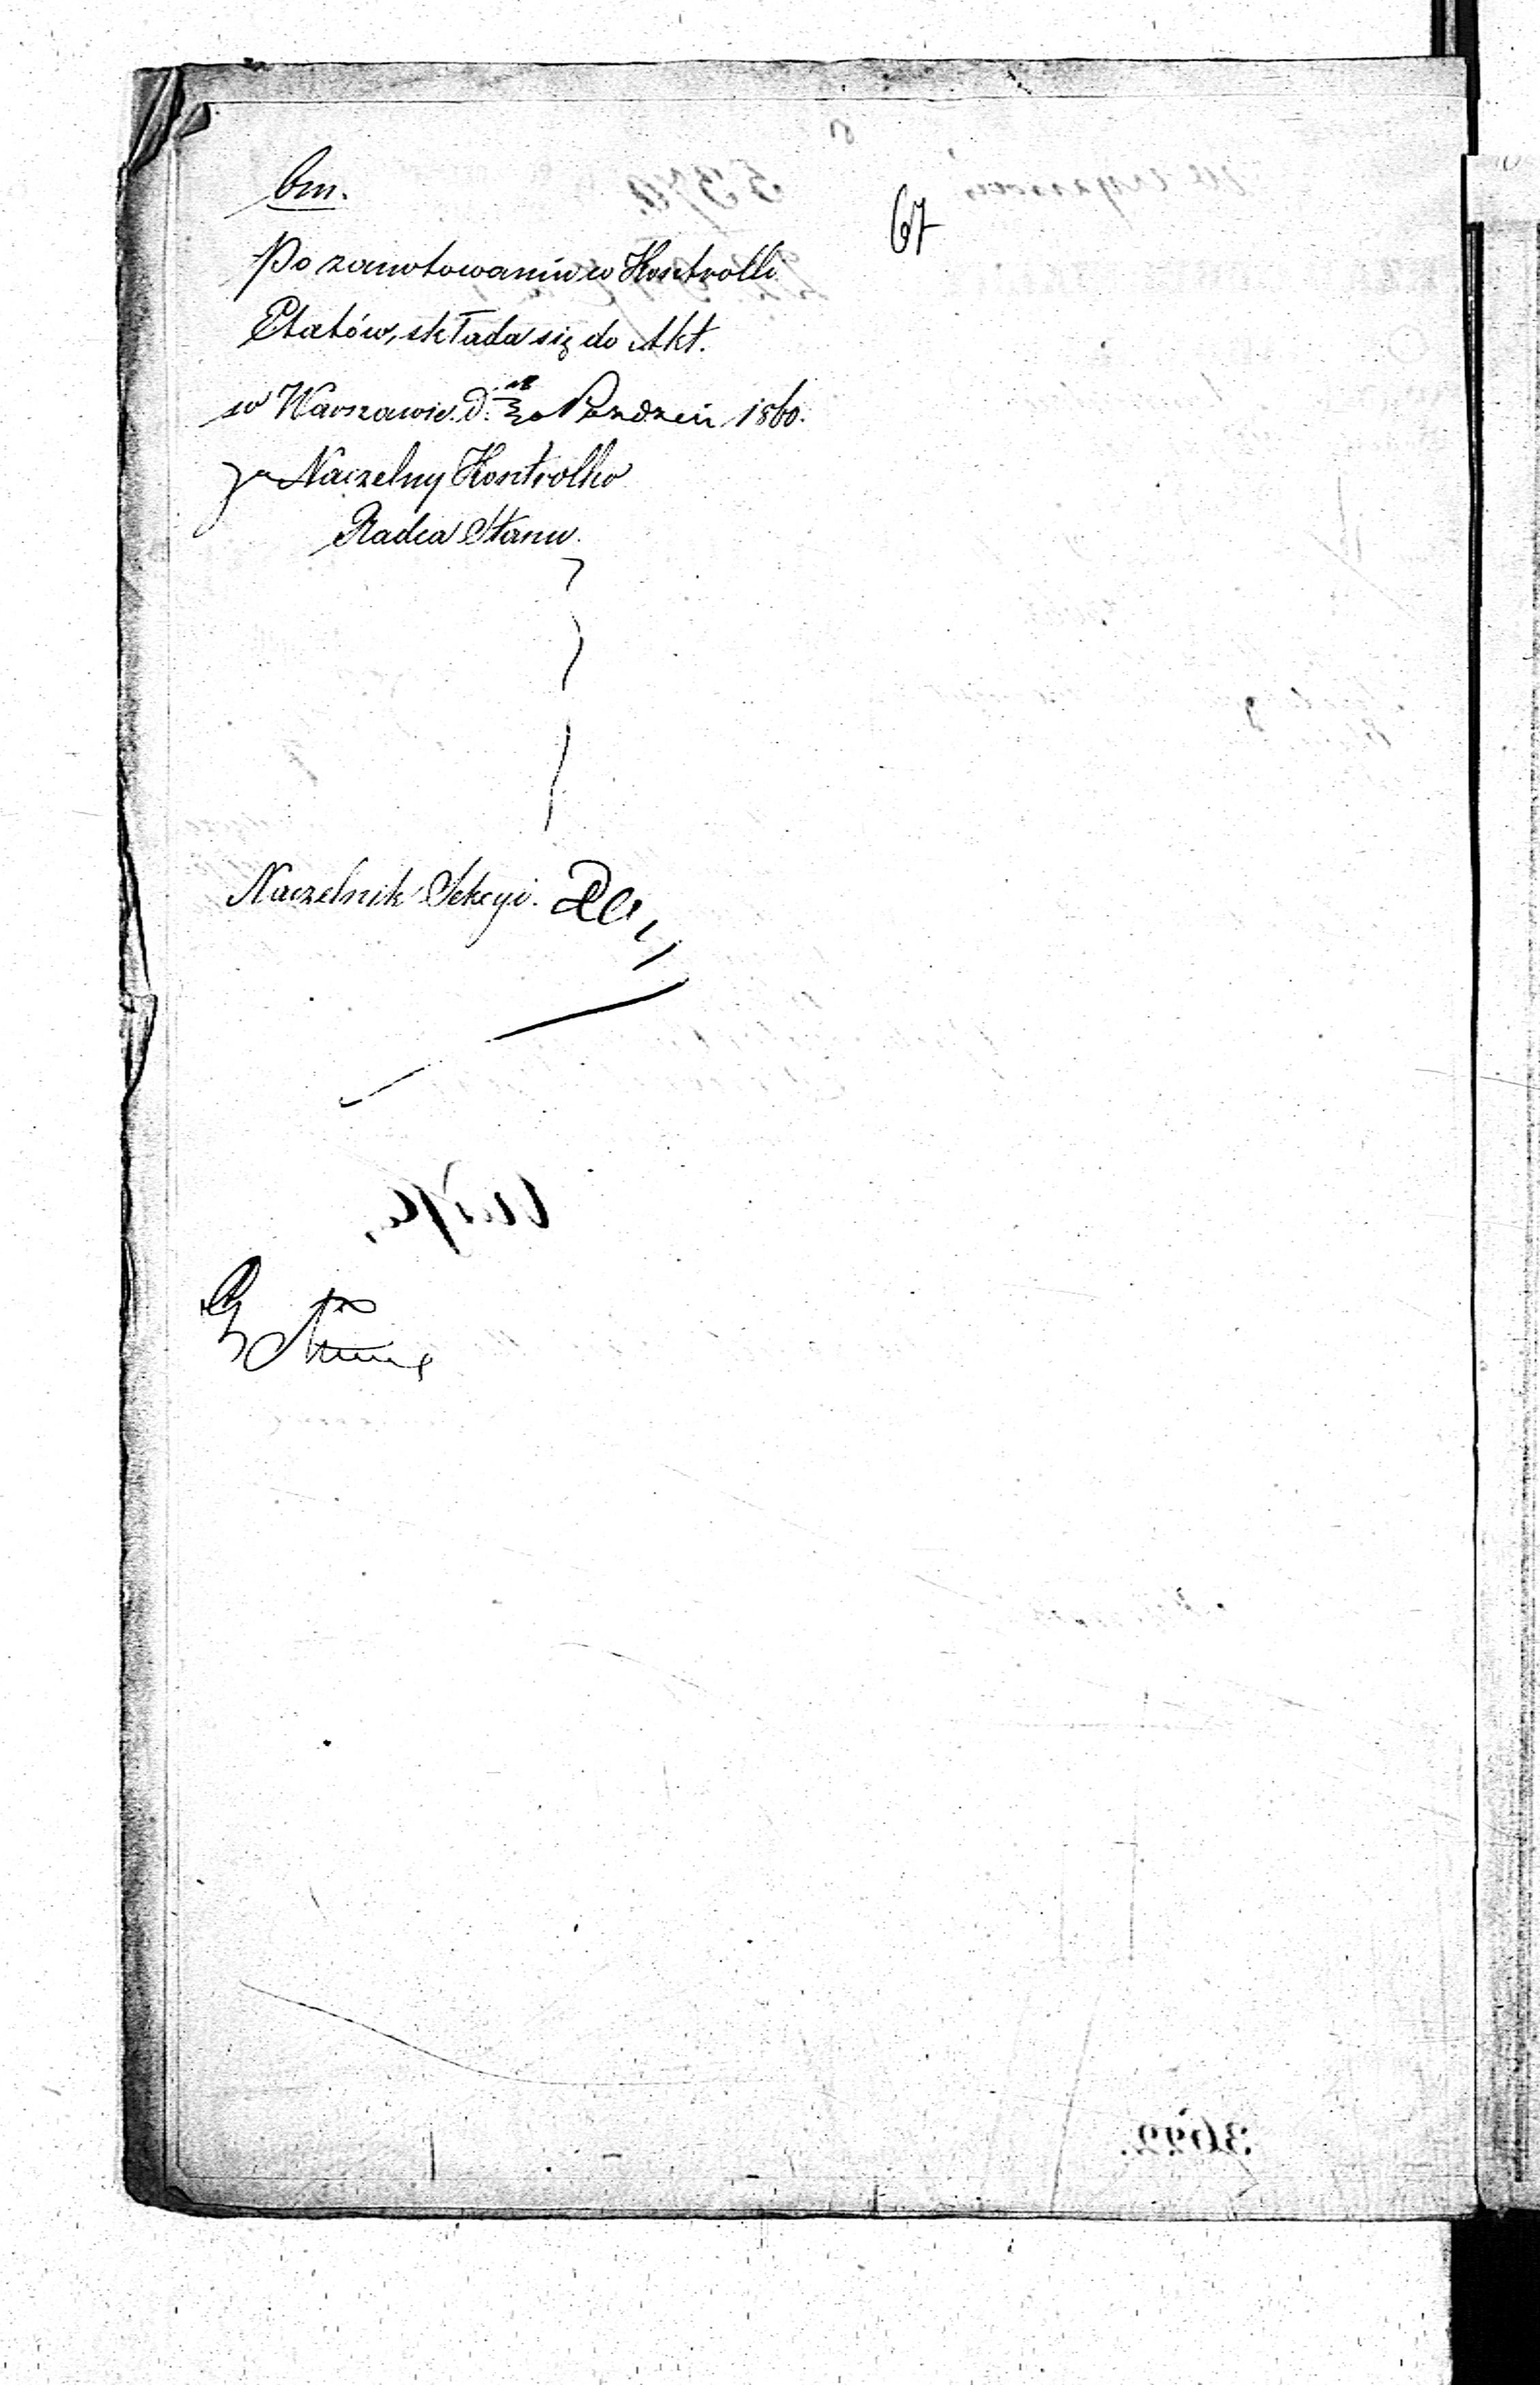 bm.
67
Po zanotowaniu w Kontrolli
Etatów, składa się do Akt.
w Warszawie d. 18/30 Paździer 1860.
za Naczelny Kontroller
Radca Stanu.
Naczelnik Sekcyi.